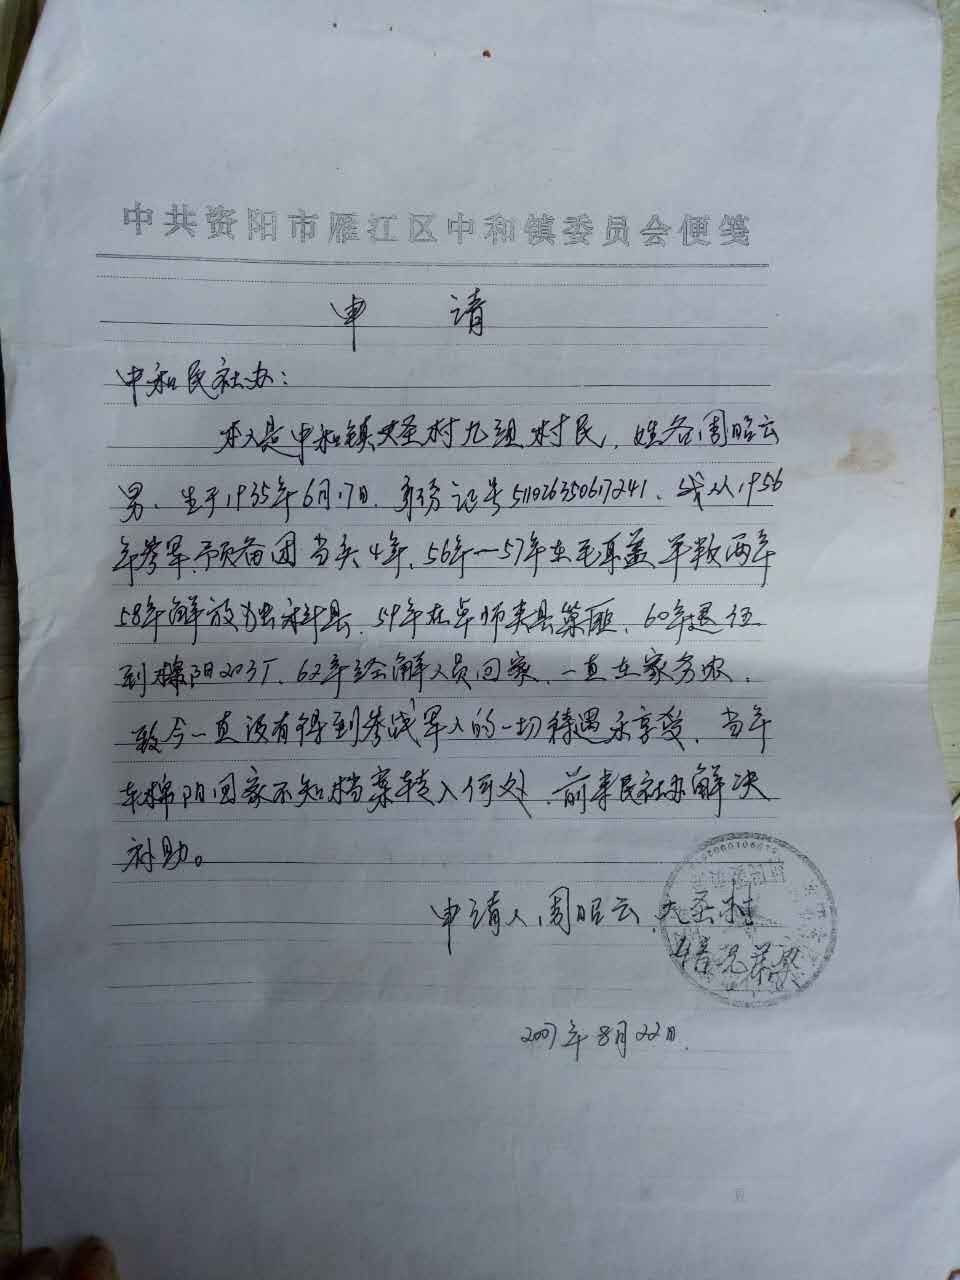 中共资阳市雁江区中和镇委员会便笺
申 请
中和民社办：
本人是中和镇大圣村九组村民，姓名周昭云
男、生于1935年6月17日、身份证号511026350617241、我从1956
年参军、预备团当兵4年、56年—57年在毛耳盖 两年
58年解放 县、59年在 县 匪、60年退伍
到棉阳203厂、62年 解人员回家、一直在家务农、
致今一直没有得到参战军人的一切待遇 享受、当年
在棉阳回家不知档案转入何处、前来民社办解决
补助。
申请人周昭云 大圣村
情况属实
2007年8月22日